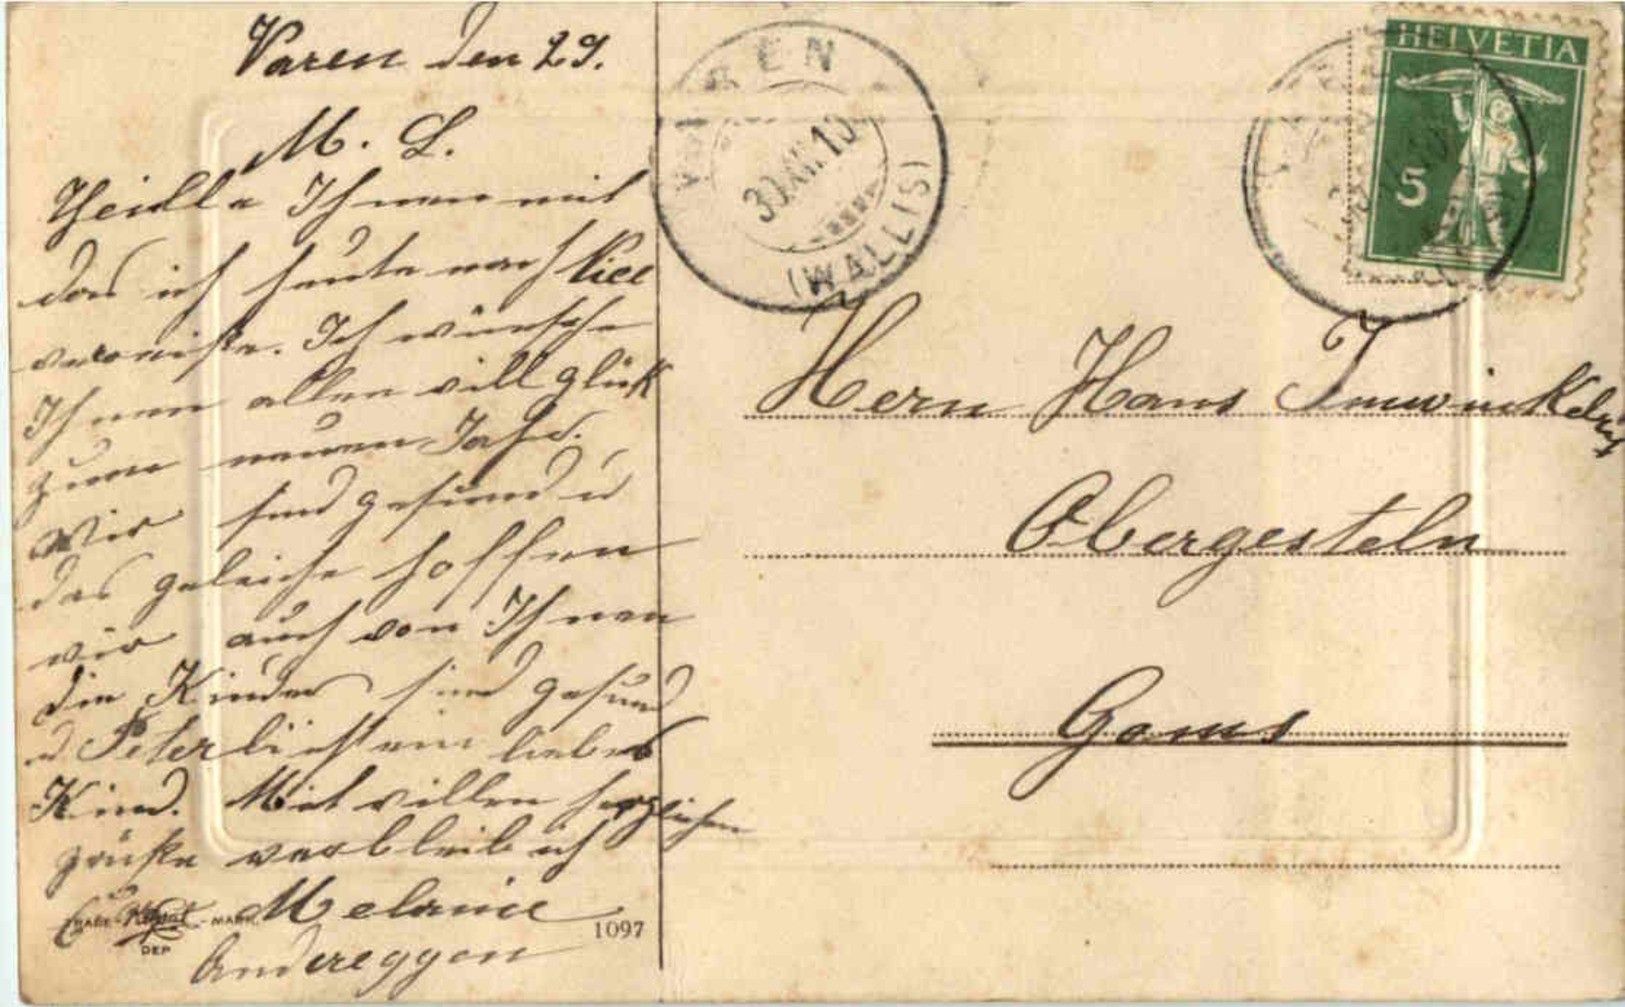 Varen den 29.
M. L.
Theille Ihnen mit
das ich heute nach
verreiste. Ich wünsche
Ihnen allen vill glük
zum neuen Jahr.
Wir sind gesund u
das geleiche hoffen
wir auch von Ihnen
die Kinder sind gesund
d Peterli ist ein liebes
Kind. Mit villen herzlichen
grüße verbleib ich
Melanie
Andereggen
TRADE - - MARK
DEP
1097
VAREN
30.XII.10
(WALLIS)
HELVETIA
5
Hern Hans Imwinkelried
Obergesteln
Goms